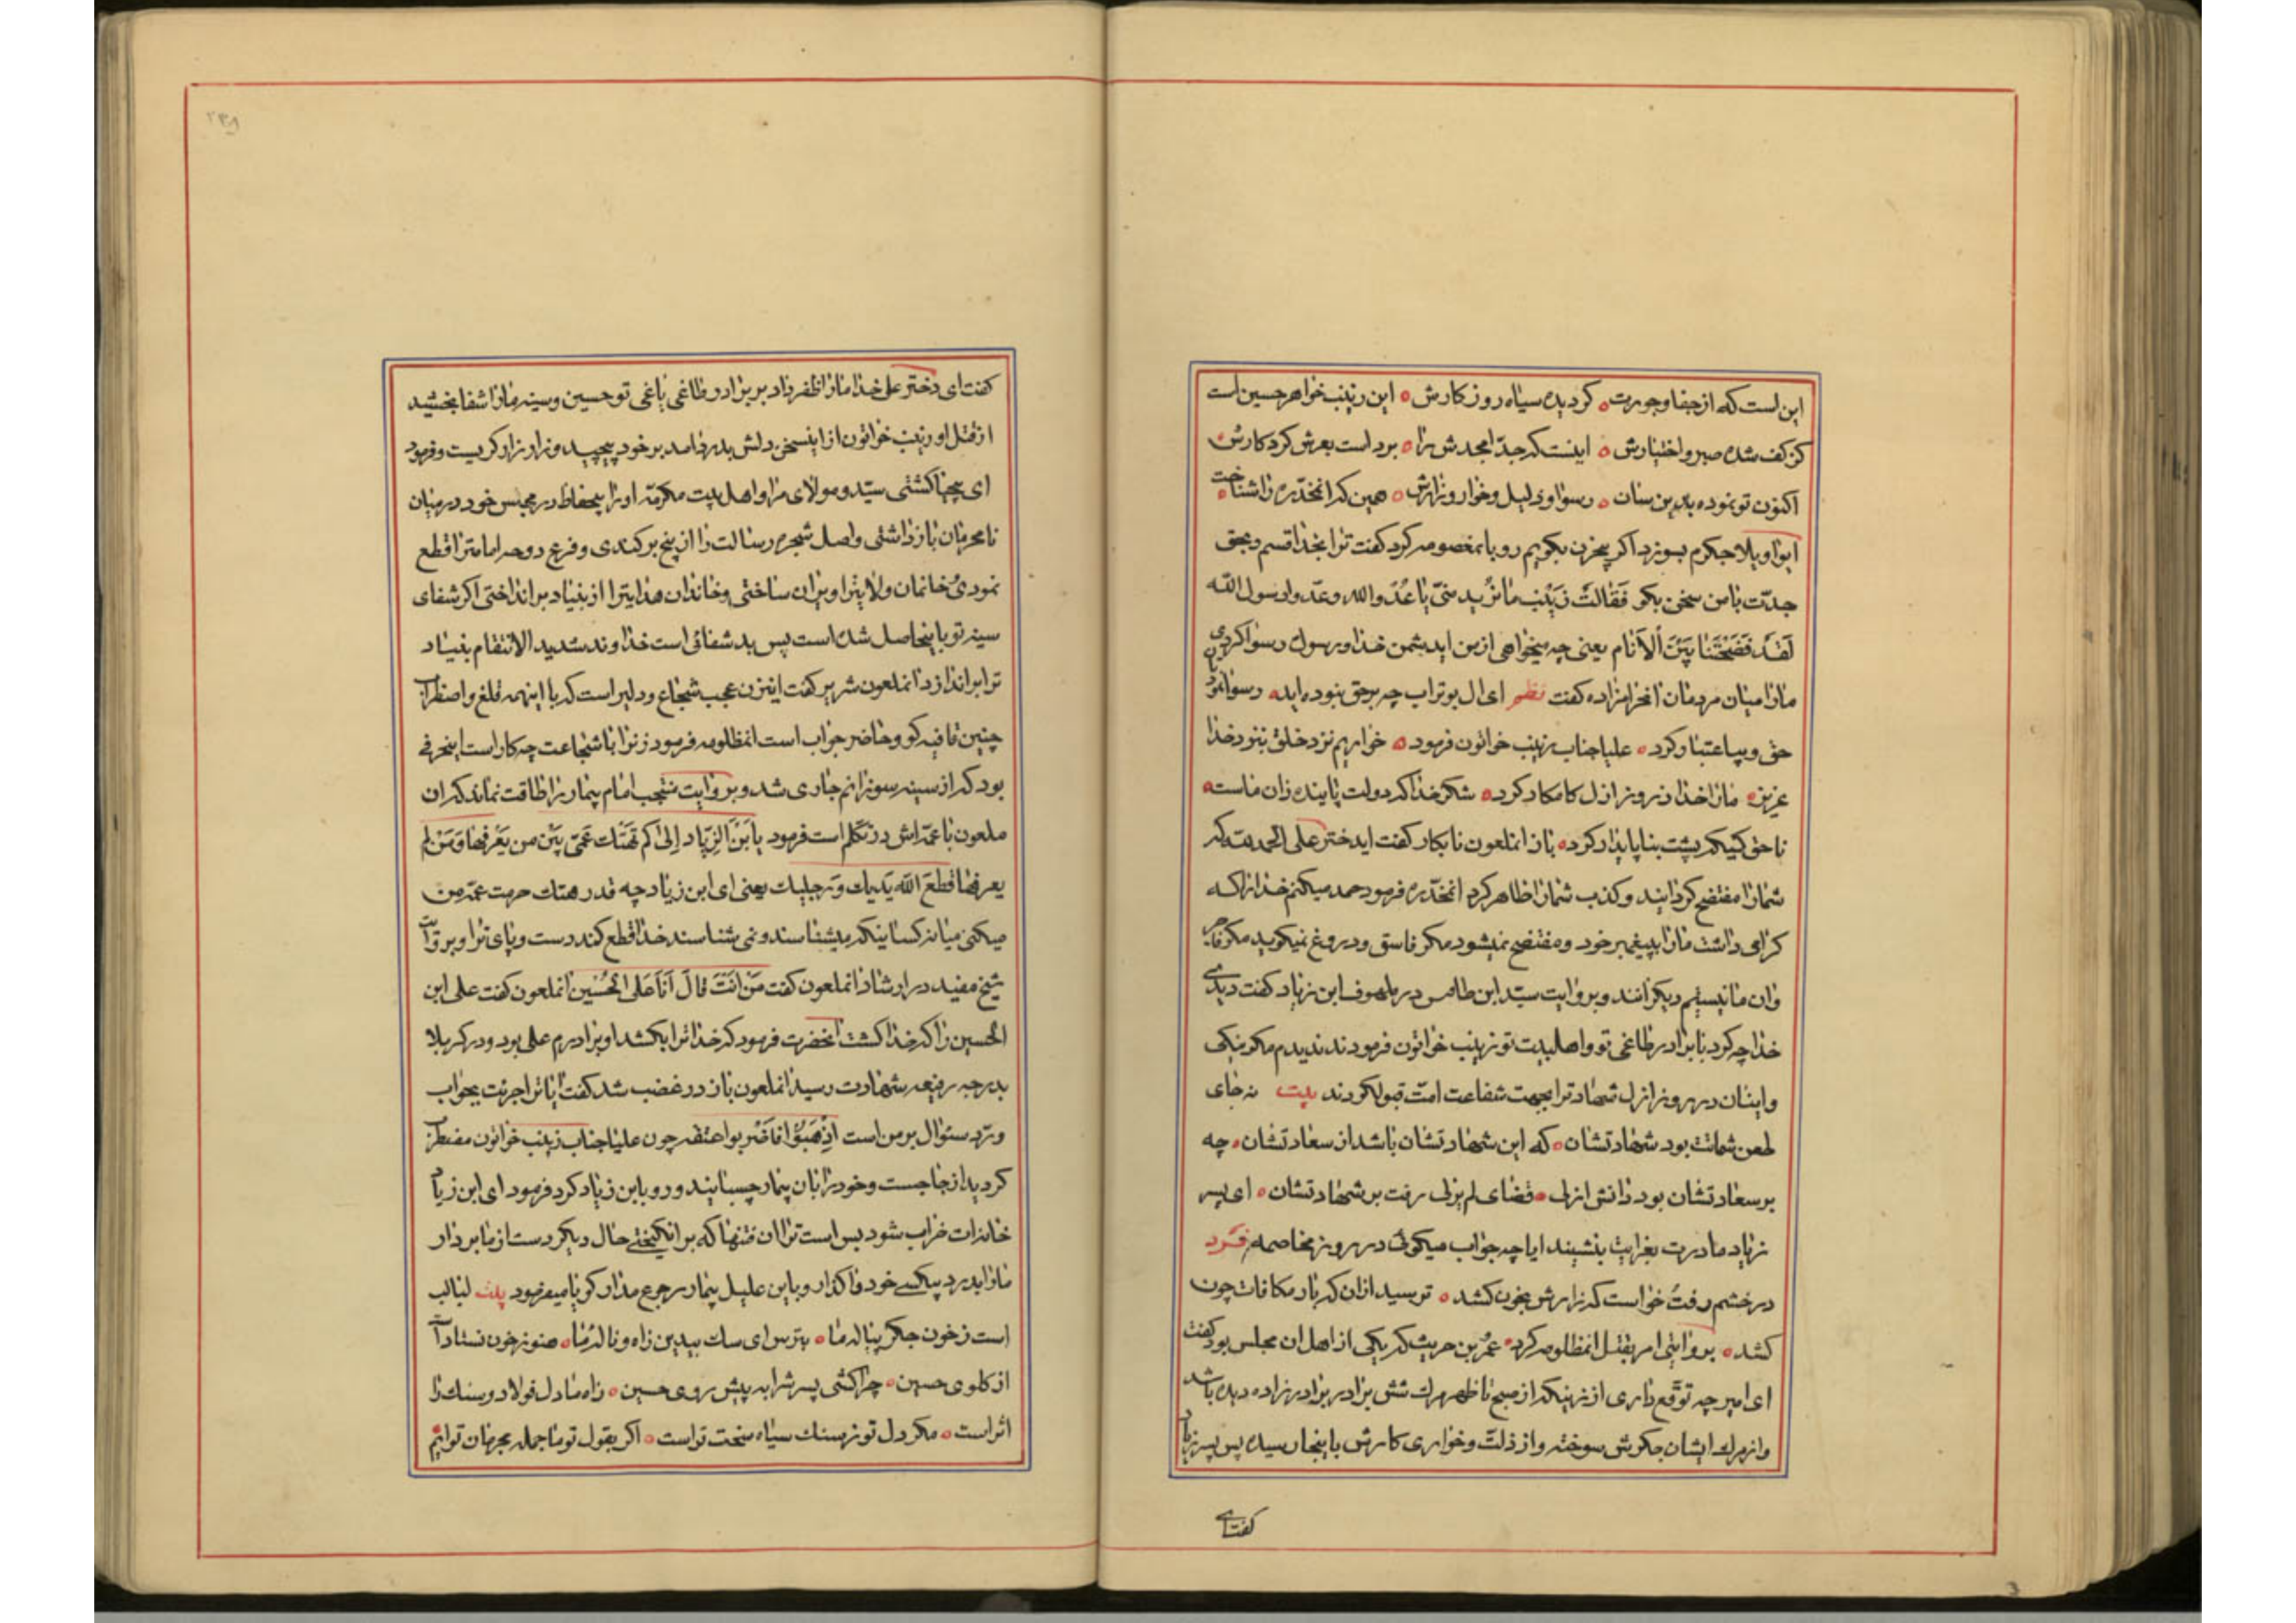 این است که از جفا و جورت ٥ کردیده سیاه روز کارش ٥ این زینب خواهر حسین است
کز کف شده صبر و اختیارش ٥ اینست که جدّ امجدش را ٥ برد است بعرش کرد کارش
اکنون تو نموده بدین سان ٥ رسوا و ذلیل و خوار و زارش ٥ همین که انمخدّره را شناخت
ایوا ویلا جکرم بسوزد اکر بیحزن بکویم رو بانمعصومه کرد کفت ترا بخدا قسم و بحق
جدّت با من سخن بکو فَقٰالَتْ زَیْنَب مٰا تُرید منّی یٰا عُدّو اللّه و عدّو رسول اللّه
لَقَد فَضَحْتَنٰا بَیْنَ اْلاَنٰام یعنی چه میخواهی از من ایدشمن خدا و رسول رسوا کردی
مارا میان مردمان انحرامزاده کفت نظم ای ال بوتراب چه بر حق نبوده اید ٥ رسوا نمود
حق و بیاعتبار کرد ٥ علیا جناب زینب خواتون فرمود ٥ خواریم نزد خلق بنزد خدا
عزیز ٥ مارا خدا ز روز ازل کامکار کرد ٥ شکر خدا که دولت پاینده زان ماست ٥
ناحق کسیکه پشت بناپایدار کرد ٥ باز انملعون نابکار کفت ایدختر علی الحمد للّه که
شمارا مفتضح کردانید و کذب شمارا ظاهر کرد انمخدّره فرمود حمد میکنم خدا را که
کرامی داشت مارا بپیغمبر خود و مفتضح نمیشود مکر فاسق و دروغ نمیکوید مکر فاجر
وان ما نیستیم دیکرانند و بروایت سیّد ابن طاوس در ملهوف ابن زیاد کفت دیدی
خدا چه کرد با برادر طاغی تو و اهلبیت تو زینب خواتون فرمودند ندیدم مکر نیکی
وایشان در روز ازل شهادترا بجهت شفاعت امّت قبولکردند بیت نه جای
طعن شماتت بود شهادتشان ٥ که این شهادتشان باشد از سعادتشان ٥ چه
بر سعادتشان بود دانش ازلی ٥ قضای لم یزلی رفت بر شهادتشان ٥ ای پسر
زیاد مادرت بعزایت بنشیند ایا چه جواب میکوئی در روز مخاصمه فرد
در خشم رفت خواست که زارش بخون کشد ٥ ترسید ازان که بار مکافات چون
کشد ٥ بروایتی امر بقتل انمظلومه کرد ٥ عمرُ بن حریث که یکی از اهل ان مجلس بود کفت
ای امیر چه توقّع داری از زنیکه از صبح تا ظهر مرك شش برادر و برادر زاده دیده باشد
واز مرك ایشان جکرش سوخته واز ذلّت و خواری کارش باینجا رسیده پس پسر زیاد
کفت ای
٢٣٨
کفت ای دختر علی خدا مارا ظفر داد بر برادر طاغی یاغی تو حسین و سینه مارا شفا بخشید
از قتل او زینب خواتون از اینسخن دلش بدرد امد بر خود پیچید و زار زار کریست و فرمود
ای بیحیا کشتی سیّد و مولای مرا و اهل بیت مکرمّه اورا بیحفاظ در مجلس خود در میان
نامحرمان باز داشتی و اصل شجره رسالت را از بیخ بر کندی و فرع دوحه امامترا قطع
نمودی خانمان ولایترا ویران ساختی و خاندان هدایترا از بنیاد بر انداختی اکر شفای
سینه تو باینحاصل شده است پس بد شفائی است خداوند شدید الانتقام بنیاد
ترا براندازد انملعون شریر کفت اینزن عجب شجاع و دلیر است که با اینهمه قلغ و اضطراب
چنین قافیه کو و حاضر جواب است انمظلومه فرمود زنرا با شجاعت چه کار است اینحرفی
بود که از سینه سوزانم جاری شد و بروایت منتجب امام بیمار را طاقت نماند که ان
ملعون با عمّه اش در تکلّم است فرمود یا بَنَ الزِیٰاد اِلیٰ کم تَهتَك عَمَّتی بَیْن من یَعْرفهٰا وَ مَنْ لم
یعرفها قطعَ اللّه یَدَیك وَ رجلیك یعنی ای ابن زیاد چه قدر هتك حرمت عمّه من
میکنی میانه کسانیکه میشناسند و نمی شناسند خدا قطع کند دست و پای ترا و بروایت
شیخ مفید در ارشاد انملعون کفت مَنْ انتَ قالَ اَنَا عَلی الحُسَین انملعون کفت علی ابن
الحسین را که خدا کشت انحضرت فرمود که خدا ترا بکشد او برادرم علی بود و در کربلا
بدرجه رفیعه شهادت رسید انملعون باز در غضب شد کفت ایا ترا جرئت بجواب
و ردّ سئوال بر من است اِذْهَبُوا فَاضْربوا عنقه چون علیا جناب زینب خواتون مضطرب
کردید از جا جست و خود را بان بیمار چسبانید و رو بابن زیاد کرد فرمود ای ابن زیاد
خانه ات خراب شود بس است ترا ان فتنها که بر انکیختی حال دیکر دست از ما بردار
مارا بدرد بیکسی خود واکذار و باین علیل بیمار رجوع مدار کویا میفرمود بیت لبالب
است ز خون جکر پیاله ما ٥ بترس ای سك بیدین ز اه و ناله ما ٥ هنوز خون نستاداست
از کلوی حسین ٥ چرا کشی پسرشرا به پیش روی حسین ٥ ز اه ما دل فولاد و سنك را
اثر است ٥ مکر دل تو ز سنك سیاه سخت تر است ٥ اکر بقول تو ما جمله مجرمان توایم